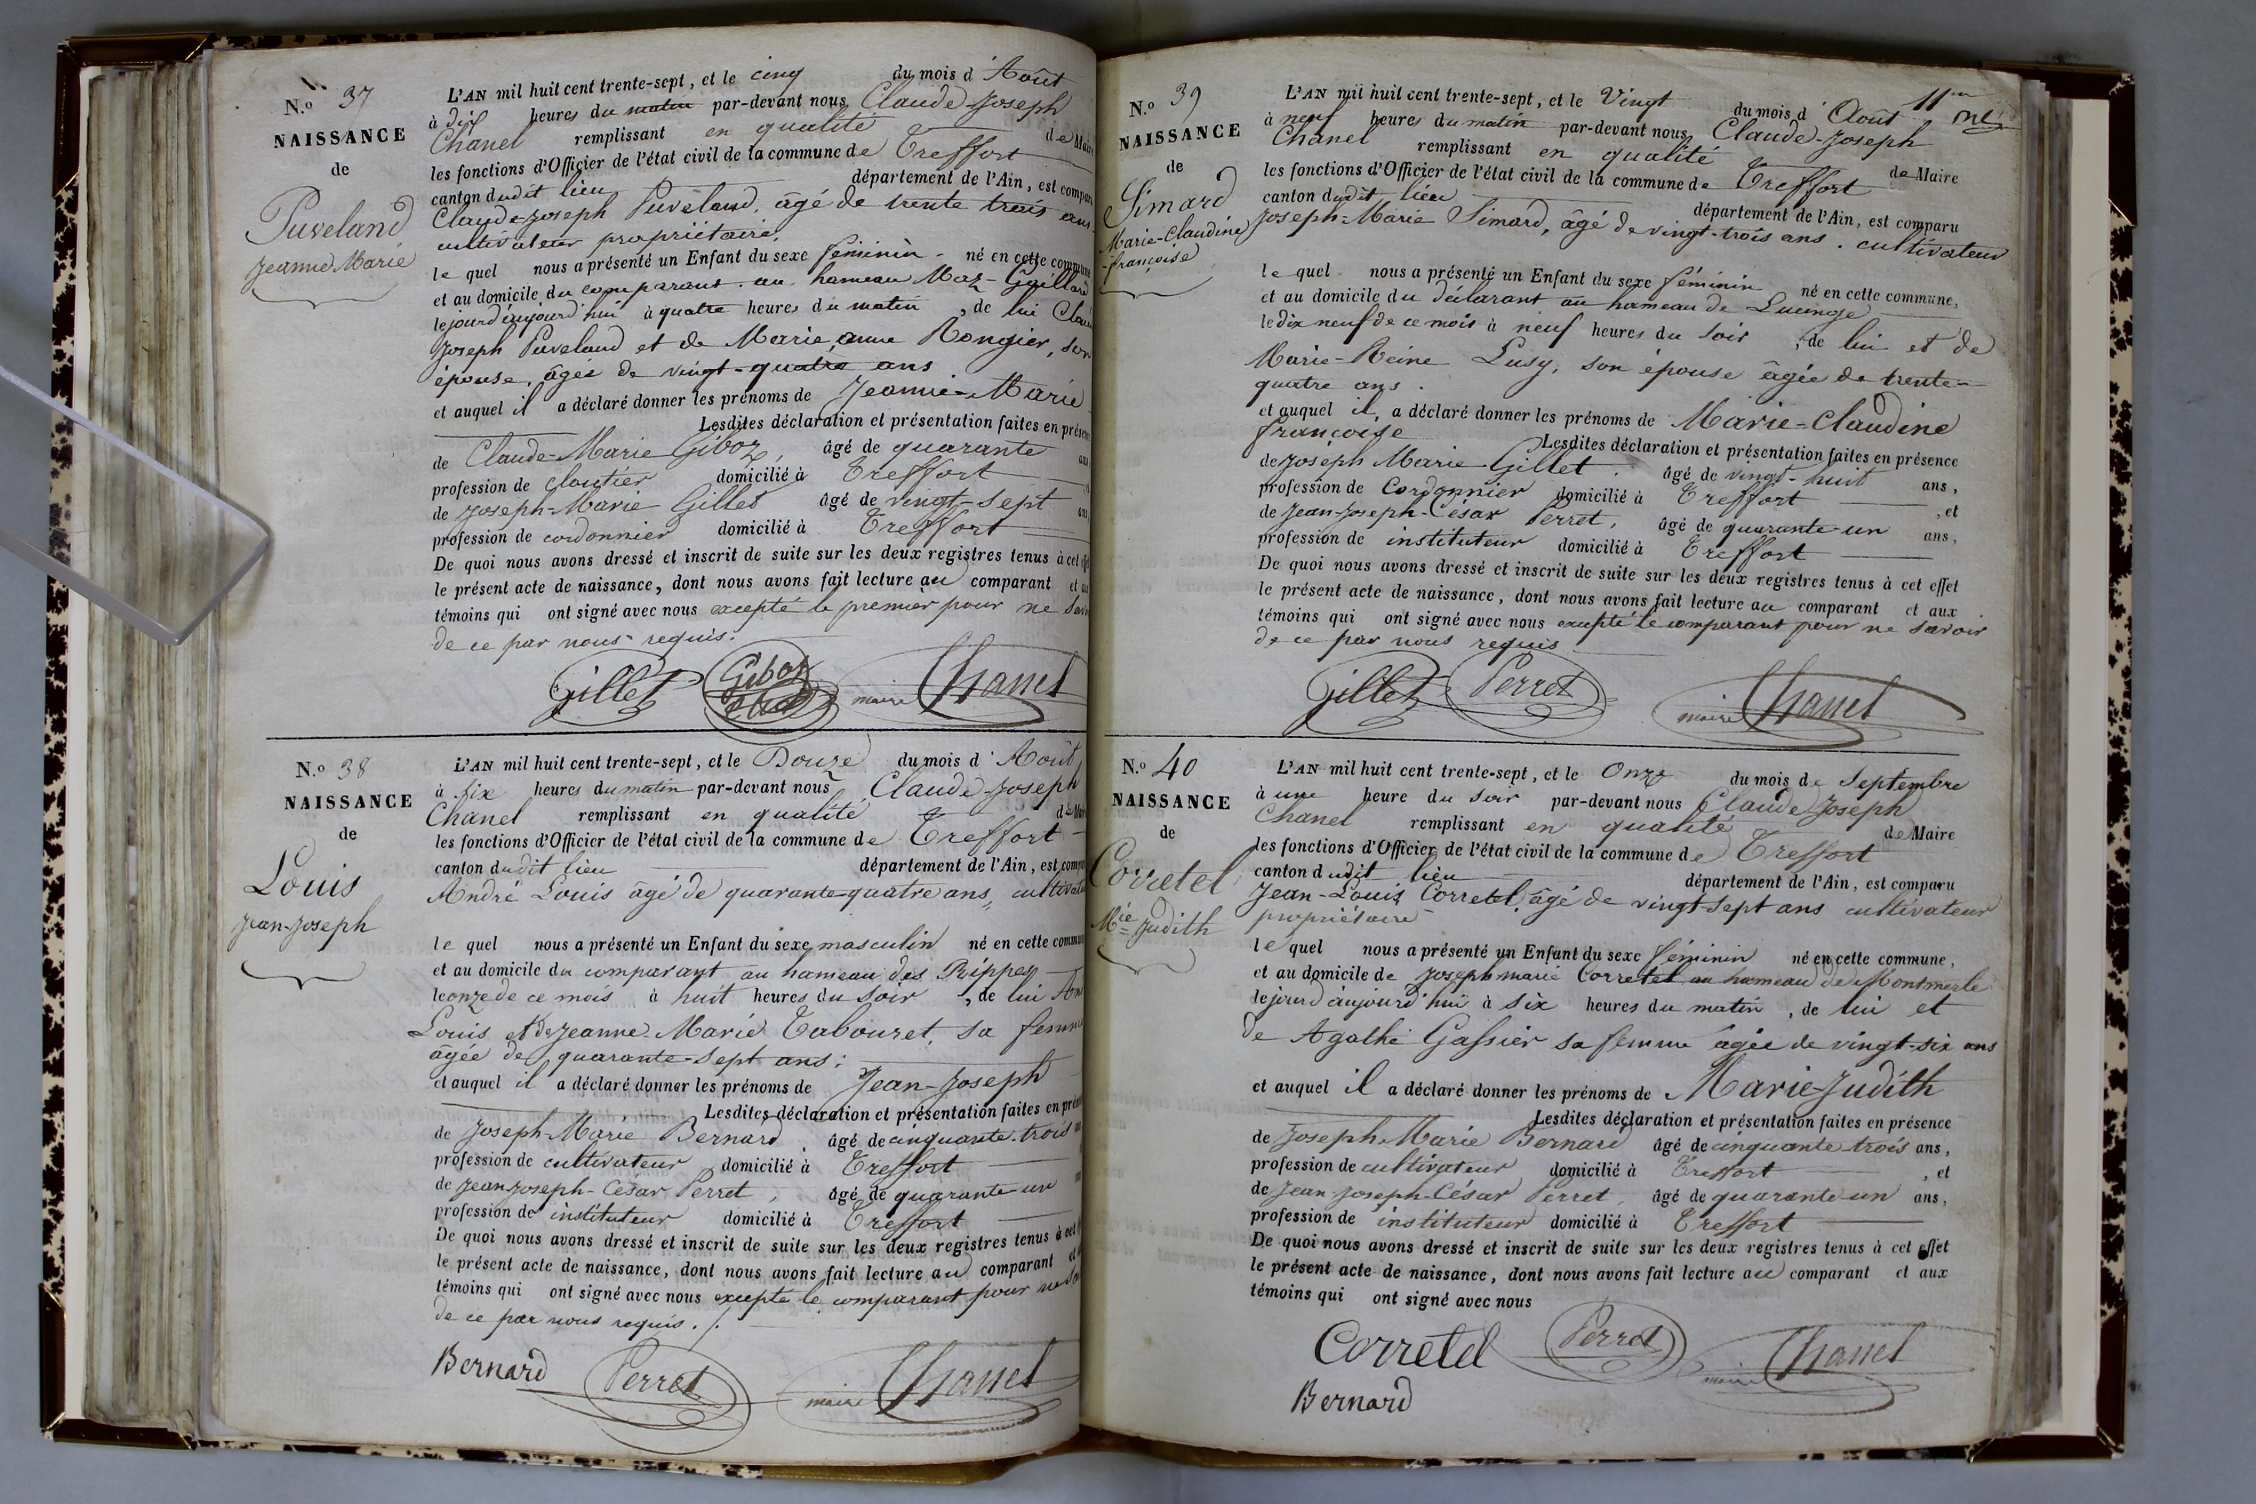 N.o 37
NAISSANCE
de
Puveland
Jeanne Marie
L'AN mil huit cent trente-sept, et le cinq du mois d'Août
à dix heures du matin par-devant nous Claude-Joseph
Chanel remplissant en qualité de Maire
les fonctions d'Officier de l'état civil de la commune de Treffort
canton dudit lieu département de l'Ain, est compar
Claude-Joseph Puveland, âgé de trente trois ans
cultivateur propriétaire,
le quel nous a présenté un Enfant du sexe féminin né en cette commune
et au domicile du comparant au hameau Maz-Gaillard
le jour d'aujourd'hui à quatre heures du matin, de lui Clau
Joseph Puveland et de Marie anne Rongier, son
épouse, âgée de vingt-quatre ans
et auquel il a déclaré donner les prénoms de Jeanne-Marie
Lesdites déclaration et présentation faites en présen
de Claude-Marie Giboz, âgé de quarante ans
profession de cloutier domicilié à Treffort
de Joseph-Marie Gillet âgé de vingt-sept ans
profession de cordonnier domicilié à Treffort
De quoi nous avons dressé et inscrit de suite sur les deux registres tenus à cet effet
le présent acte de naissance, dont nous avons fait lecture au comparant et au
témoins qui ont signé avec nous excepté le premier pour ne savoir
de ce par nous requis.
Gillet Giboz maire Chanel
N.o 38
NAISSANCE
de
Louis
Jean-Joseph
L'AN mil huit cent trente-sept, et le Douze du mois d'Août
à six heures du matin par-devant nous Claude-Joseph
Chanel remplissant en qualité de Maire
les fonctions d'Officier de l'état civil de la commune de Treffort
canton dudit lieu département de l'Ain, est compar
André Louis âgé de quarante-quatre ans, cultivateur
le quel nous a présenté un Enfant du sexe masculin né en cette commune
et au domicile du comparant au hameau des Rippes
le onze de ce mois à huit heures du soir, de lui André
Louis et de Jeanne-Marie Tabouret, sa femme
âgée de quarante-sept ans;
et auquel il a déclaré donner les prénoms de Jean-Joseph
Lesdites déclaration et présentation faites en présen
de Joseph-Marie Bernard âgé de cinquante-trois
profession de cultivateur domicilié à Treffort
de Jean-Joseph-César Perret, âgé de quarante-un
profession de instituteur domicilié à Treffort
De quoi nous avons dressé et inscrit de suite sur les deux registres tenus à cet
le présent acte de naissance, dont nous avons fait lecture au comparant et
témoins qui ont signé avec nous excepté le comparant pour ne savoir
de ce par nous requis ./.
Bernard Perret maire Chanel
N.o 39
NAISSANCE
de
Simard
Marie-Claudine
-françoise
L'AN mil huit cent trente-sept, et le Vingt du mois d'Août
à neuf heures du matin par-devant nous Claude-Joseph
Chanel remplissant en qualité de Maire
les fonctions d'Officier de l'état civil de la commune de Treffort
canton dudit lieu département de l'Ain, est comparu
Joseph-Marie Simard, âgé de vingt-trois ans, cultivateur
le quel nous a présenté un Enfant du sexe féminin né en cette commune,
et au domicile du déclarant au hameau de Lucinge
le dix neuf de ce mois à neuf heures du soir, de lui et de
Marie-Reine Lusy, son épouse âgée de trente-
quatre ans.
et auquel il a déclaré donner les prénoms de Marie-Claudine
françoise Lesdites déclaration et présentation faites en présence
de Joseph Marie Gillet âgé de vingt-huit ans,
profession de Cordonnier domicilié à Treffort, et
de Jean-Joseph-César Perret, âgé de quarante-un ans,
profession de instituteur domicilié à Treffort
De quoi nous avons dressé et inscrit de suite sur les deux registres tenus à cet effet
le présent acte de naissance, dont nous avons fait lecture au comparant et aux
témoins qui ont signé avec nous excepté le comparant pour ne savoir
de ce par nous requis
Gillet Perret maire Chanel
N.o 40
NAISSANCE
de
Corretel
Mie Judith
L'AN mil huit cent trente-sept, et le Onze du mois de Septembre
à une heure du soir par-devant nous Claude Joseph
Chanel remplissant en qualité de Maire
les fonctions d'Officier de l'état civil de la commune de Treffort
canton dudit lieu département de l'Ain, est comparu
Jean-Louis Corretel, âgé de vingt-sept ans cultivateur
propriétaire
le quel nous a présenté un Enfant du sexe féminin né en cette commune,
et au domicile de Joseph marie Corretel au hameau de Montmerle
le jour d'aujourd'hui à six heures du matin, de lui et
de Agathe Gassier sa femme âgée de vingt-six ans
et auquel il a déclaré donner les prénoms de Marie-Judith
Lesdites déclaration et présentation faites en présence
de Joseph-Marie Bernard âgé de cinquante-trois ans,
profession de cultivateur domicilié à Treffort, et
de Jean-Joseph-César Perret, âgé de quarante-un ans,
profession de instituteur domicilié à Treffort
De quoi nous avons dressé et inscrit de suite sur les deux registres tenus à cet effet
le présent acte de naissance, dont nous avons fait lecture au comparant et aux
témoins qui ont signé avec nous
Corretel Perret maire Chanel
Bernard